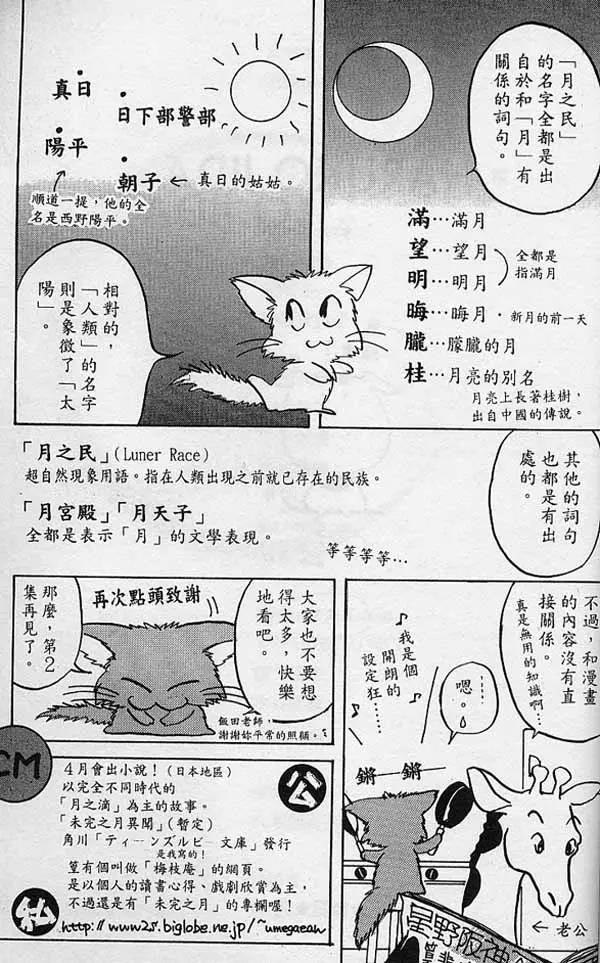 「月之民」
的名字全都是出
自於和「月」有
關係的詞句。
滿…滿月
望…望月
明…明月
全都是
指滿月
晦…晦月・新月的前一天
朧…朦朧的月
桂…月亮的別名
月亮上長著桂樹，
出自中國的傳說。
真日
日下部警部
陽平
朝子 ← 真日的姑姑。
順道一提，他的全
名是西野陽平。
相對的，
「人類」的名字
則是象徵了「太
陽」。
其他的詞句
也都是有出
處的。
「月之民」(Luner Race)
超自然現象用語。指在人類出現之前就已存在的民族。
「月宮殿」「月天子」
全都是表示「月」的文學表現。
等等等等…
不過，和漫畫
的內容沒有直
接關係。
真是無用的知識啊…
嗯。
♪我是個
開朗的
設定狂…♪
鏘─ 鏘─
← 老公
星野阪神
大家也不要想
得太多，快樂
地看吧。
再次點頭致謝
飯田老師，
謝謝妳平常的照顧。
那麼，第2
集再見了。
CM
公
4月會出小說！（日本地區）
以完全不同時代的
「月之滴」為主的故事。
「未完之月異聞」（暫定）
角川「ティーンズルビー文庫」發行
是我寫的！
並有個叫做「梅枝庵」的網頁。
是以個人的讀書心得、戲劇欣賞為主，
不過還是有「未完之月」的專欄喔！
私
http://www2s.biglobe.ne.jp/~umegaean